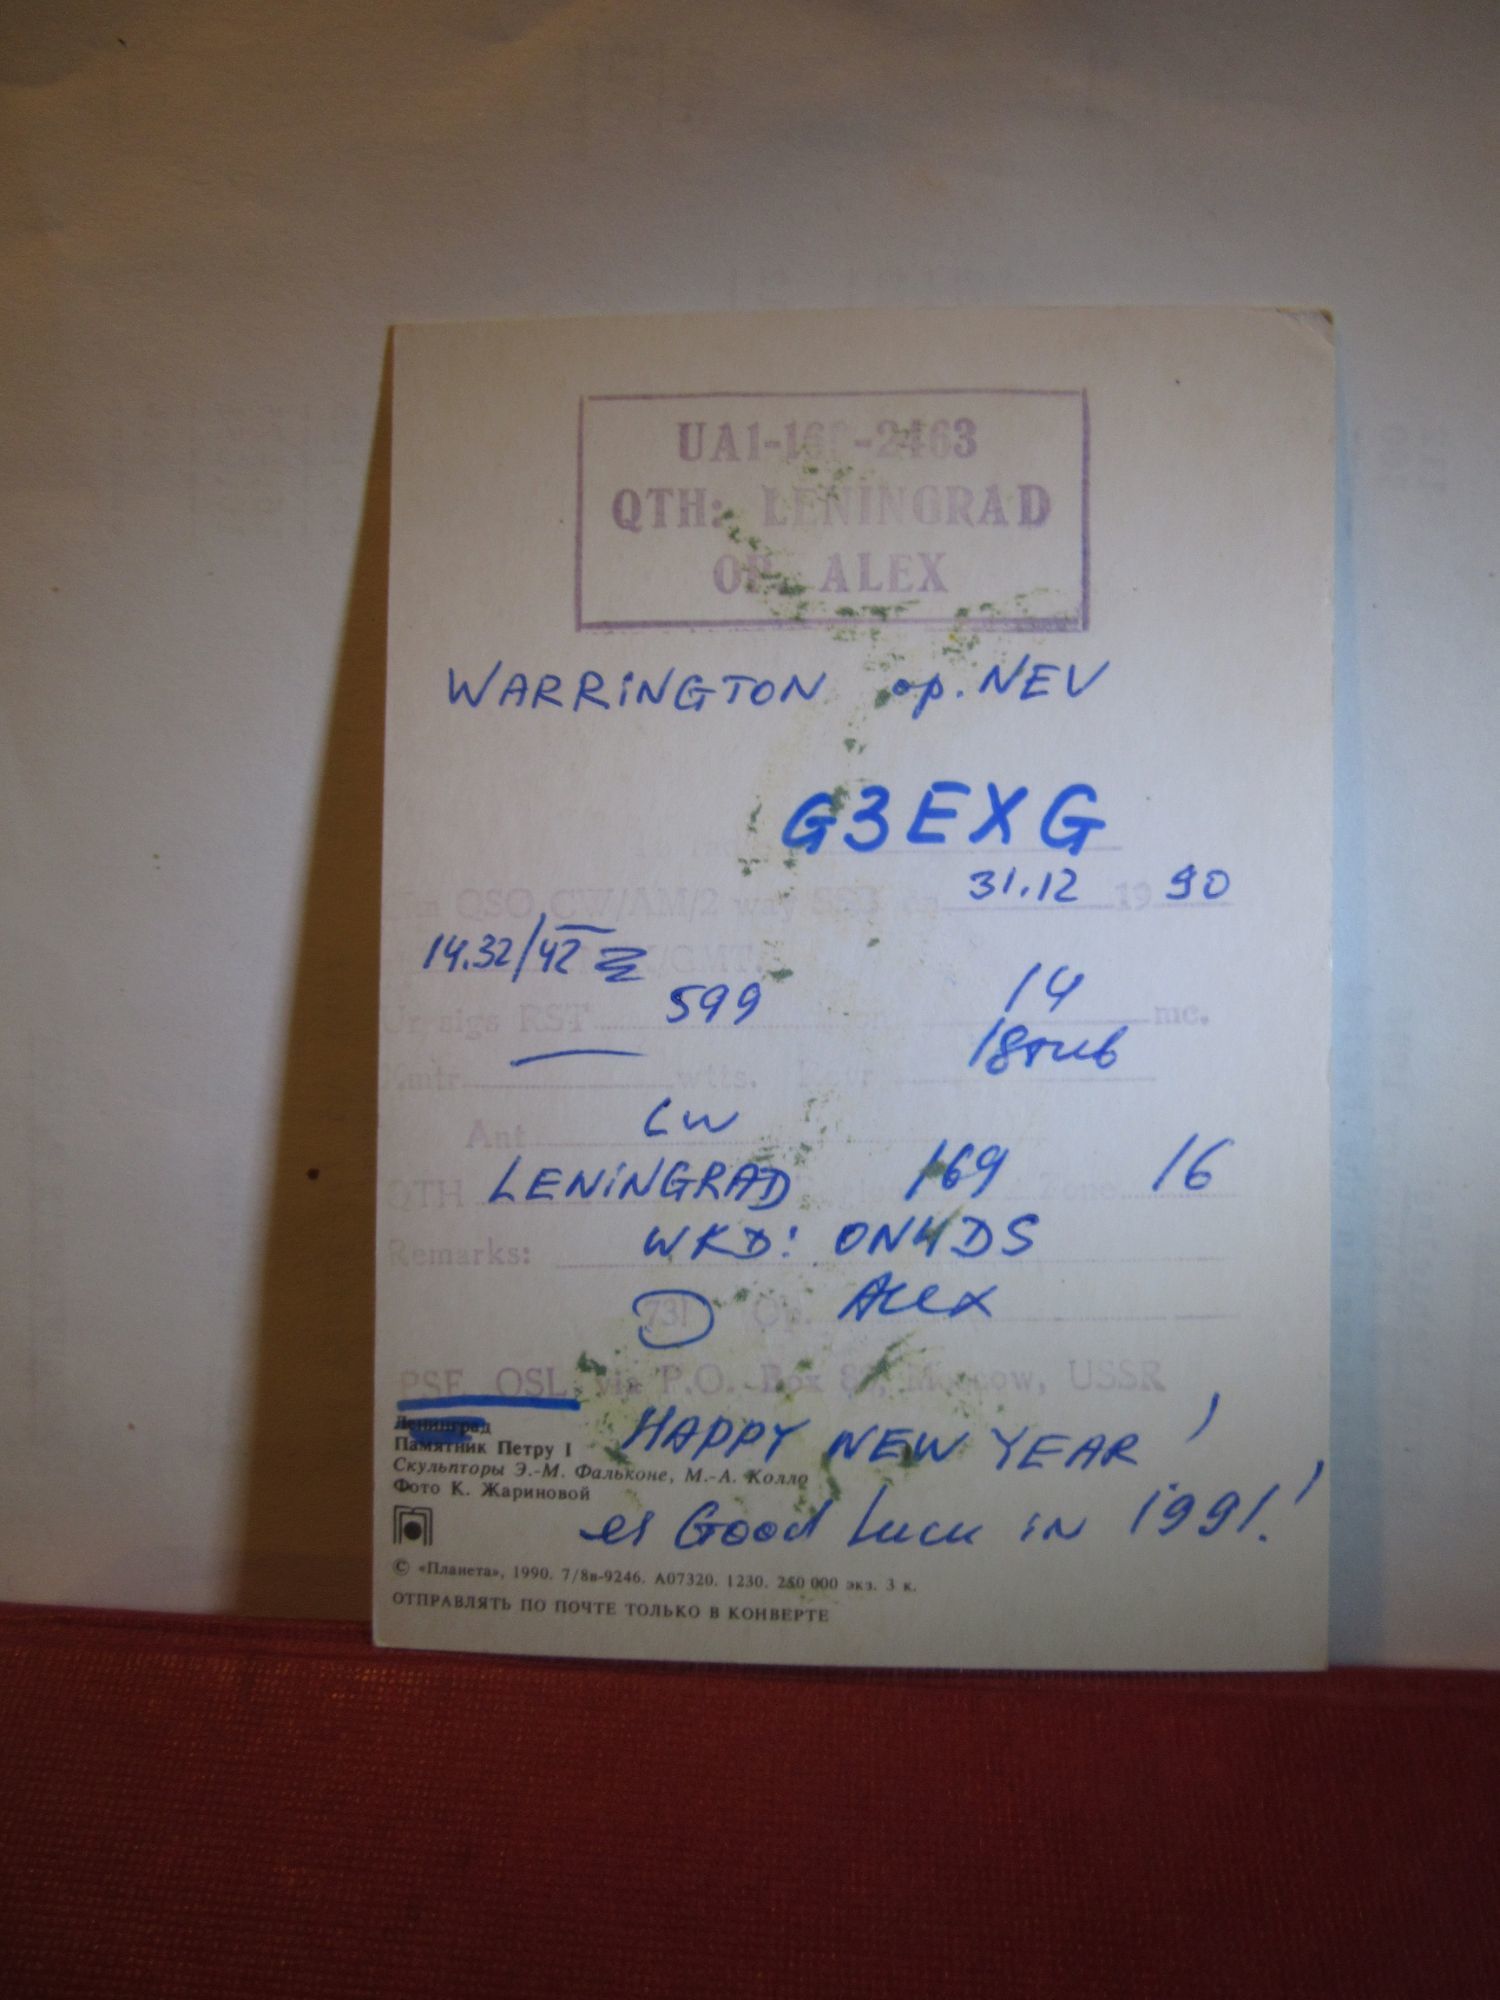 UA1-169-2463
QTH: LENINGRAD
OP. ALEX
WARRINGTON op. NEV
G3EXG
To radio
QSO CW/AM/2 way SSB on 31.12 1990
14.32/42 /GMT.
Ur sigs RST 599 on 14 mc.
wtts. 18тub
Ant CW
QTH LENINGRAD 169 Zone 16
Remarks: WKD: ON4DS
73! Op. Alex
PSE QSL via P.O. Box 88, Moscow, USSR
HAPPY NEW YEAR!
es Good Luck in 1991!
Ленинград
Памятник Петру I
Скульпторы Э.-М. Фальконе, М.-А. Колло
Фото К. Жариновой
© «Планета», 1990. 7/8в-9246. А07320. 1230. 250 000 экз. 3 к.
ОТПРАВЛЯТЬ ПО ПОЧТЕ ТОЛЬКО В КОНВЕРТЕ